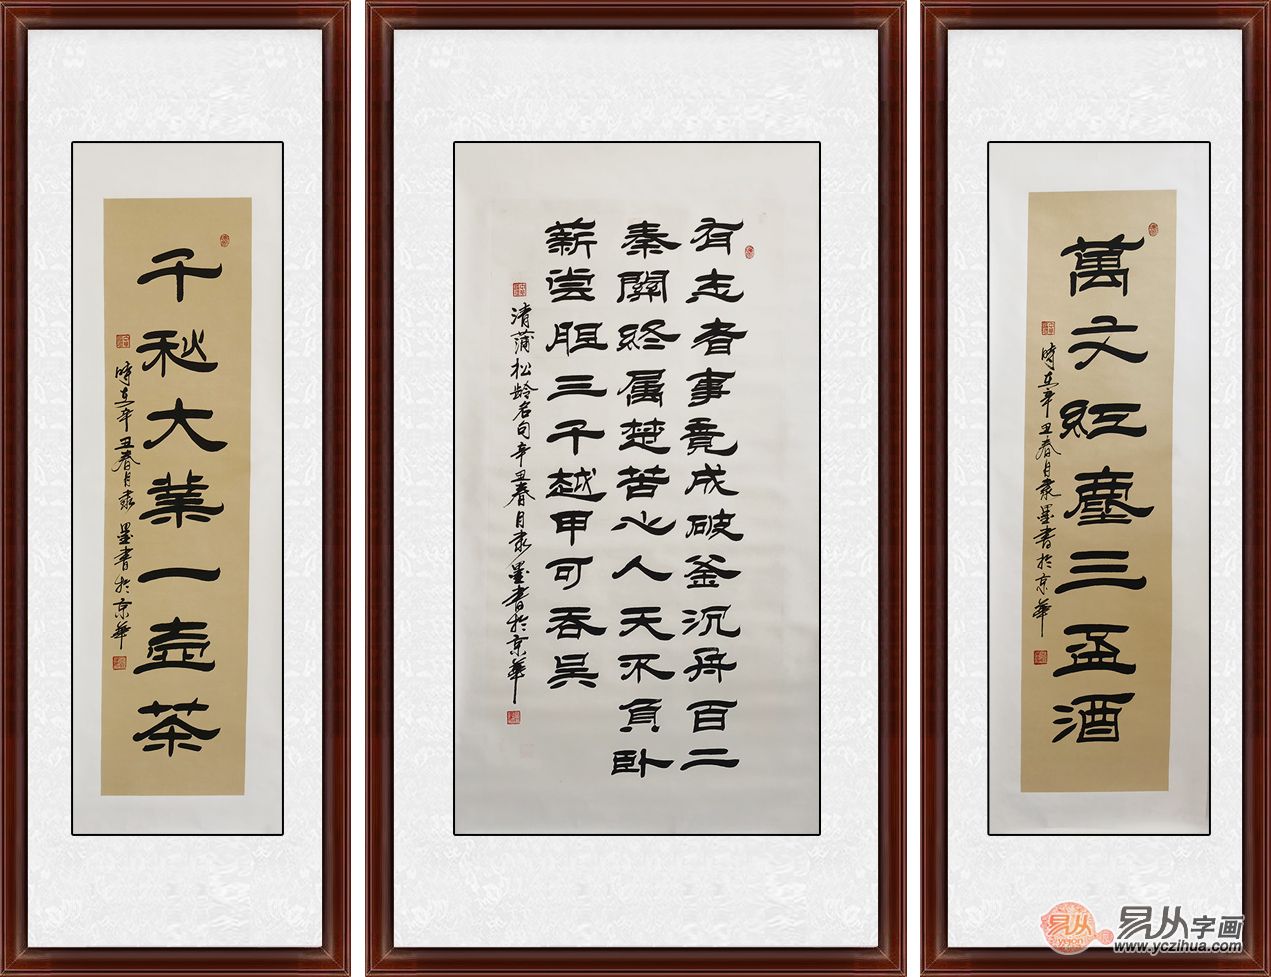 萬丈紅塵三盃酒
時在辛丑春月隶墨書於京華
有志者事竟成破釜沉舟百二
秦關終属楚苦心人天不負卧
薪尝胆三千越甲可吞吴
清蒲松齡名句辛丑春月隶墨書於京華
千秋大業一壺茶
時在辛丑春月隶墨書於京華
易从字画
www.yczihua.com